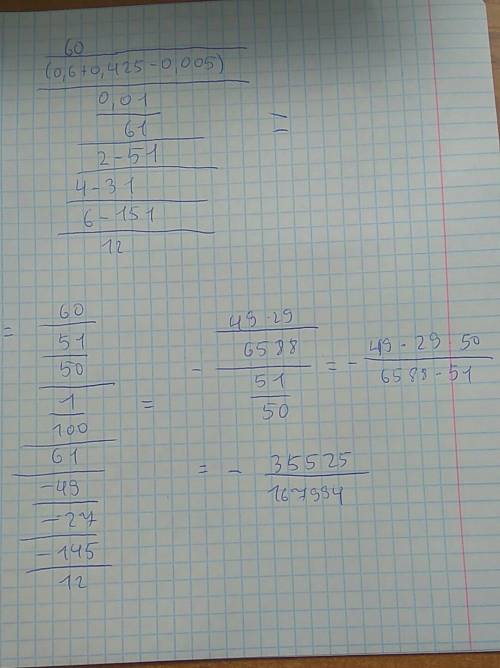 60
(0,6+0,425-0,005)
0,01
61
2-51
4-31
6-151
12
=
=
60
51
50
1
100
61
-49
-27
-145
12
=
-
49·29
6588
51
50
= -
49-29·50
6588-51
= -
35525
167994